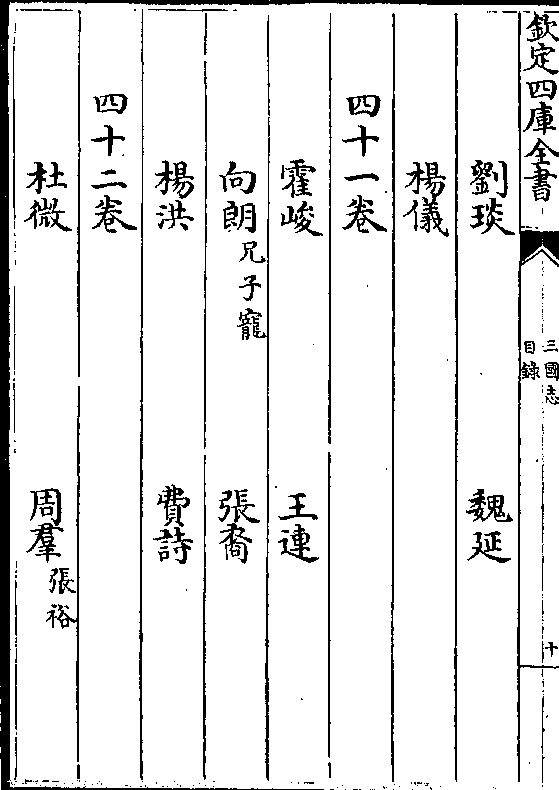 欽定四庫全書
三國志
目錄
十
劉琰 魏延
楊儀
四十一卷
霍峻 王連
向朗兄子寵 張裔
楊洪 費詩
四十二卷
杜微 周羣張裕